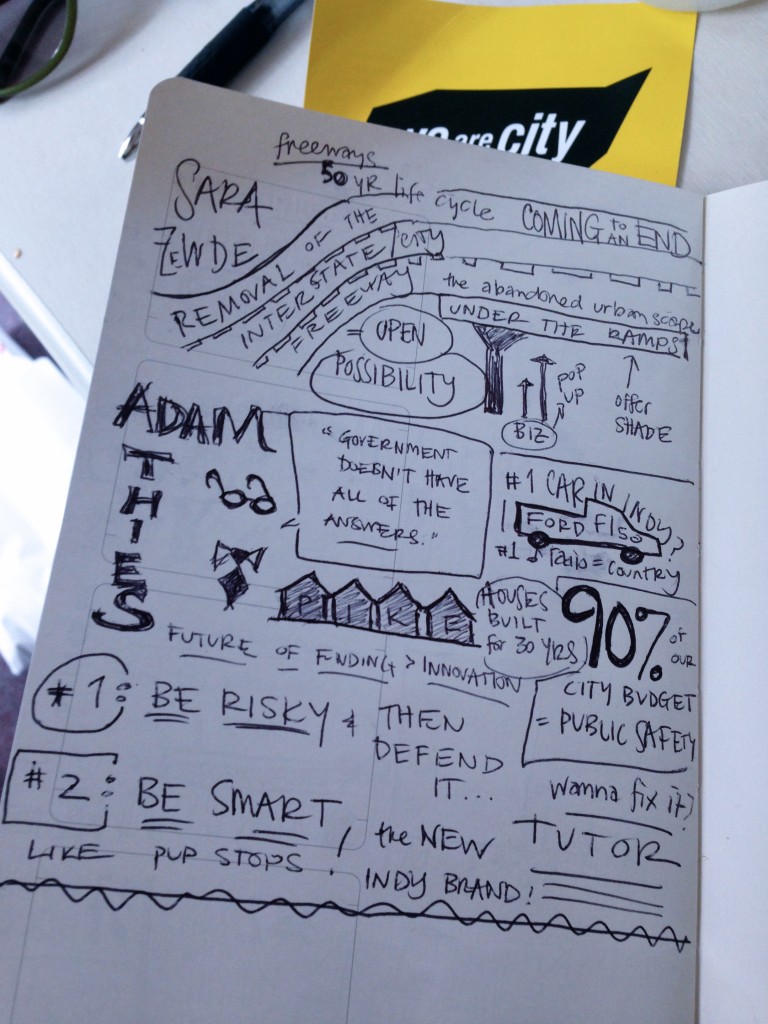 are city
freeways
50 YR life cycle COMING TO AN END
SARA
ZEWDE
REMOVAL OF THE
INTERSTATE / CITY
FREEWAY
the abandoned urban scape
UNDER THE RAMPS
= OPEN
POSSIBILITY
BIZ
POP
UP
offer
SHADE
ADAM
THIES
"GOVERNMENT
DOESN'T HAVE
ALL OF THE
ANSWERS."
#1 CAR IN INDY?
FORD F150
#1 Radio = COUNTRY
PIKE
HOUSES
BUILT
for 30 YRS
90% of
OUR
CITY BUDGET
= PUBLIC SAFETY
FUTURE OF FUNDING > INNOVATION
#1: BE RISKY & THEN
DEFEND
IT...
#2: BE SMART!
LIKE PUP STOPS
the NEW
INDY BRAND!
wanna fix it?
TUTOR